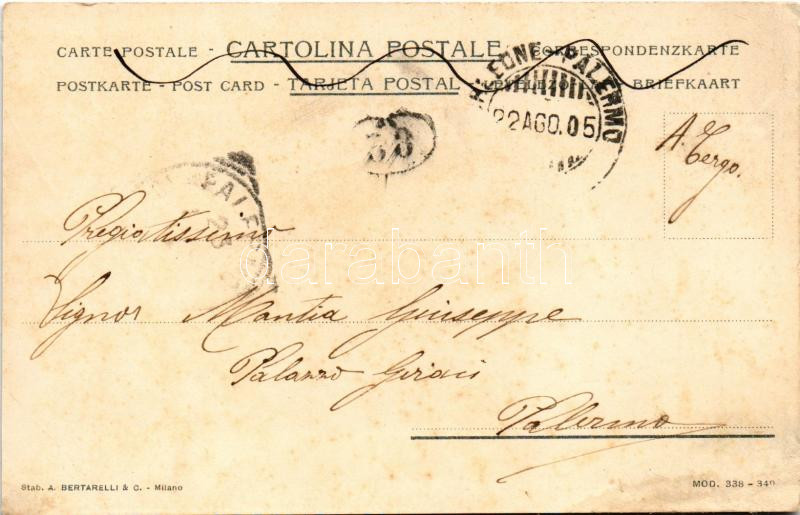 CARTE POSTALE - CARTOLINA POSTALE - CORRESPONDENZKARTE
POSTKARTE - POST CARD - TARJETA POSTAL - LEVELEZŐ BRIEFKAART
LEONE PALERMO
22 AGO. 05
30
PALERMO
A Tergo.
Pregiatissimo
Signor Mantia Giuseppe
Palazzo Geraci
Palermo
darabanth
Stab. A. BERTARELLI & C. - Milano
MOD. 338 - 340